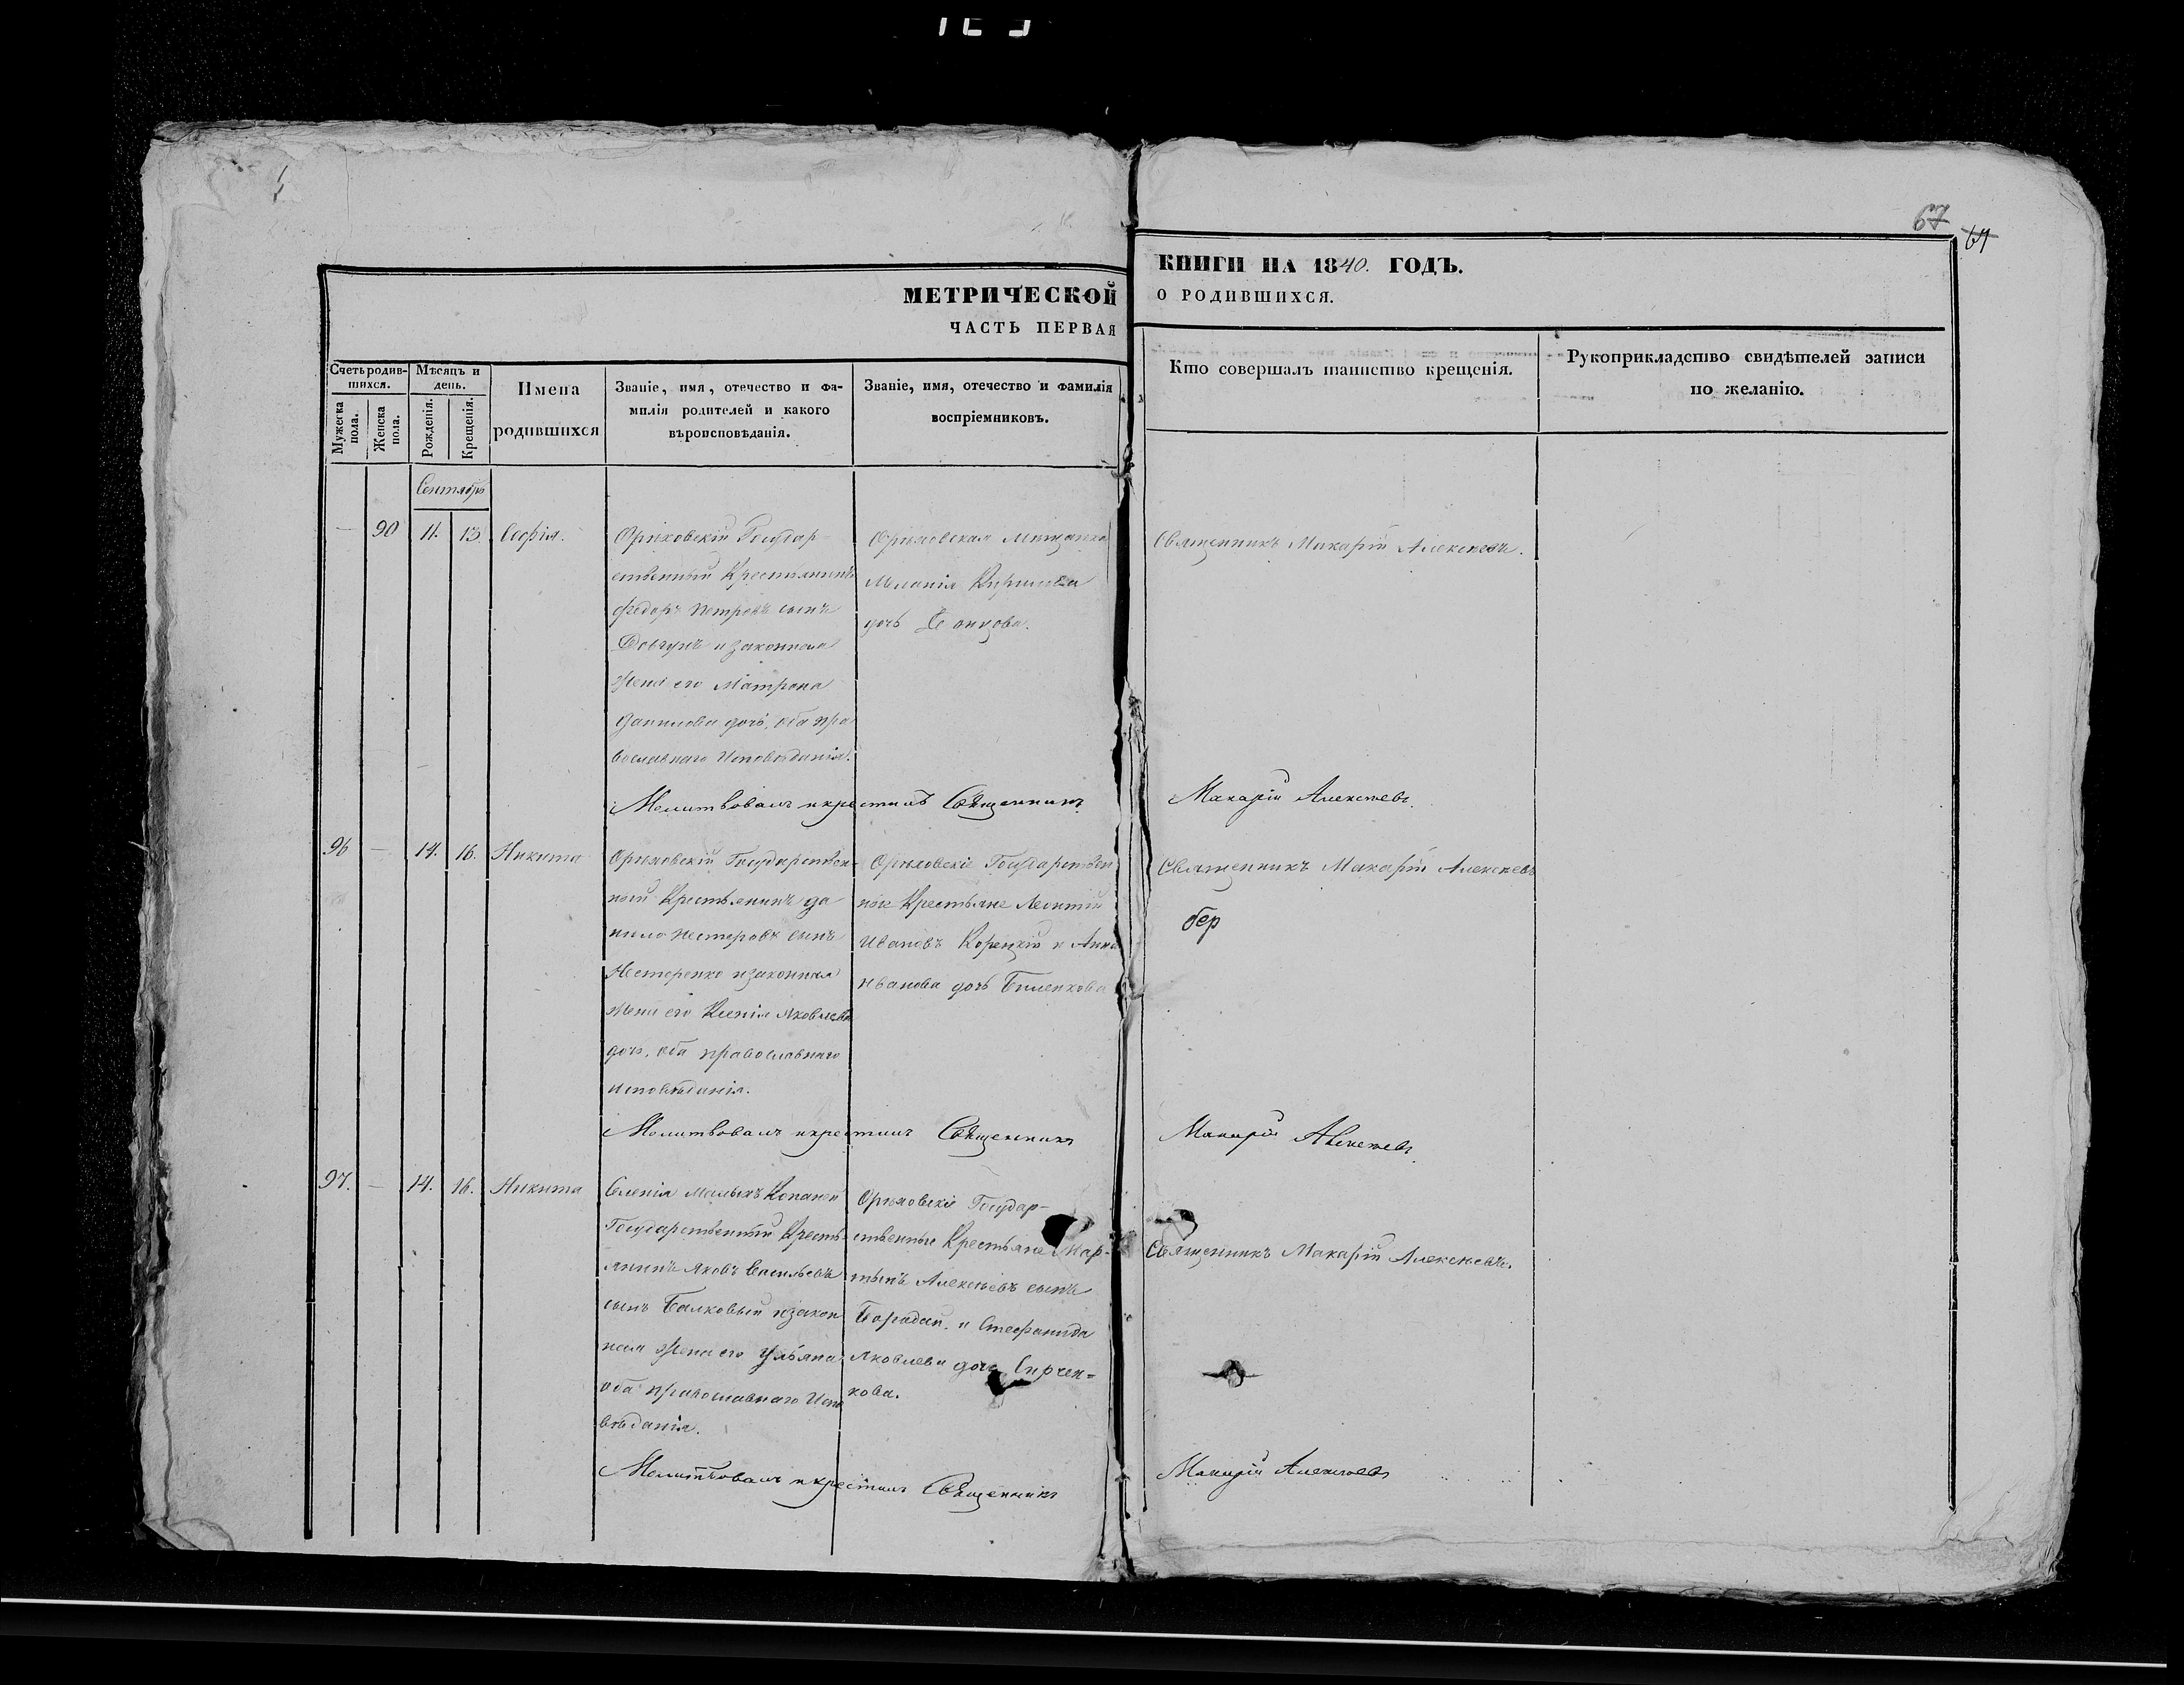 67
МЕТРИЧЕСКОЙ
КНИГИ НА 1840. ГОДЪ.
ЧАСТЬ ПЕРВАЯ
О РОДИВШИХСЯ.
Счетъ родив-
шихся.
Мѣсяцъ и
день.
Мужеска
пола.
Женска
пола.
Рожденія.
Крещенія.
Имена
родившихся
Званіе, имя, отечество и фа-
милія родителей и какого
вѣроисповѣданія.
Званіе, имя, отечество и фамилія
воспріемниковъ.
Кто совершалъ таинство крещенія.
Рукоприкладство свидѣтелей записи
по желанію.
Сентябрь
90
11.
13.
Софія.
Орѣховскій Государ-
ственный Крестьянинъ
Федоръ Петровъ сынъ
Довгунъ и законная
жена его Матрона
Данилова дочь, оба пра
вославнаго Исповѣданія.
Орѣховская Мещанка
Меланія Кирилова
дочь
Священникъ Макарій Алексѣевъ.
Молитвовалъ и крестилъ Священникъ
Макарій Алексѣевъ.
96
14.
16.
Никита
Орѣховскій Государствен-
ный Крестьянинъ Да
нило Нестеровъ сынъ
Нестеренко и законная
жена его Ксенія Яковлева
дочь, оба православнаго
исповѣданія.
Орѣховскіе Государствен
ные Крестьяне Леонтій
Ивановъ Корецкій и Анна
Иванова дочь Биленкова
Священникъ Макарій Алексѣевъ
бер
Молитвовалъ и крестилъ Священникъ
Макарій Алексѣевъ.
97.
14.
16.
Никита
Селенія Малыхъ Копаней
Государственный Кресть-
янинъ Яковъ Васильевъ
сынъ Балковый и закон
ная жена его Ульяна
оба православнаго Испо
вѣданія.
Орѣховскіе Государ-
ственные Крестьяне Мар-
тынъ Алексѣевъ сынъ
Бородай и Стефанида
Яковлева дочь Сирчен-
кова.
Священникъ Макарій Алексѣевъ.
Молитвовалъ и крестилъ Священникъ
Макарій Алексѣевъ